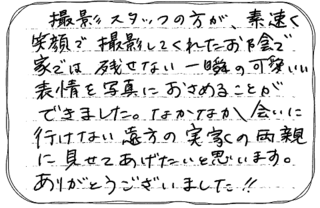 撮影スタッフの方が、素速く
笑顔で撮影してくれたお陰で
家では残せない一瞬の可愛いい
表情を写真におさめることが
できました。なかなか会いに
行けない遠方の実家の両親
に見せてあげたいと思います。
ありがとうございました!!